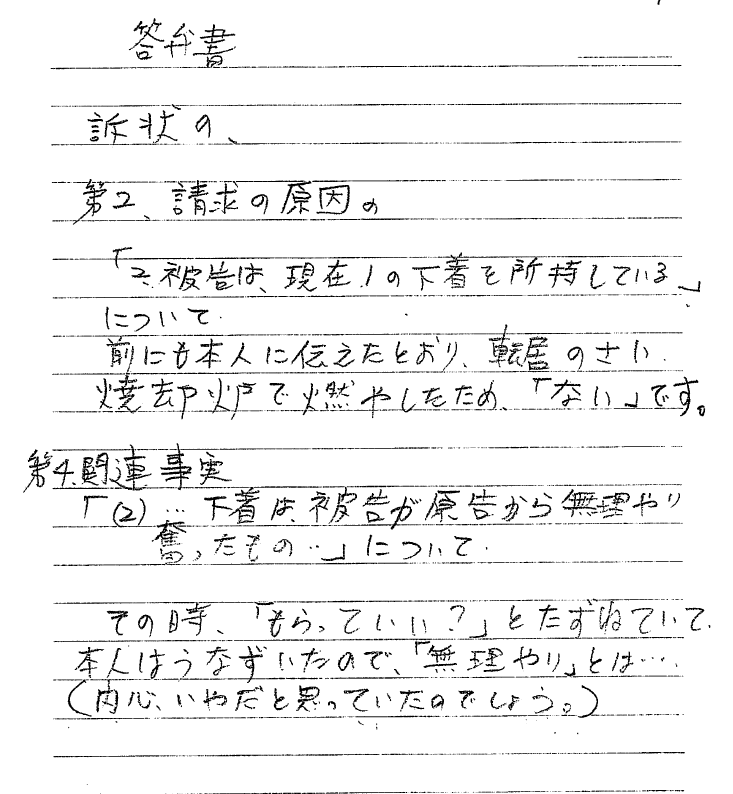 答弁書
訴状の、
第2、請求の原因の
「2.被告は、現在1の下着を所持している」
について.
前にも本人に伝えたとおり、転居のさい.
焼却炉で燃やしたため、「ない」です。
第4.関連事実
「(2)…下着は、被告が原告から無理やり
奪ったもの…」について.
その時、「もらっていい?」とたずねていて、
本人はうなずいたので、「無理やり」とは….
(内心、いやだと思っていたのでしょう。)